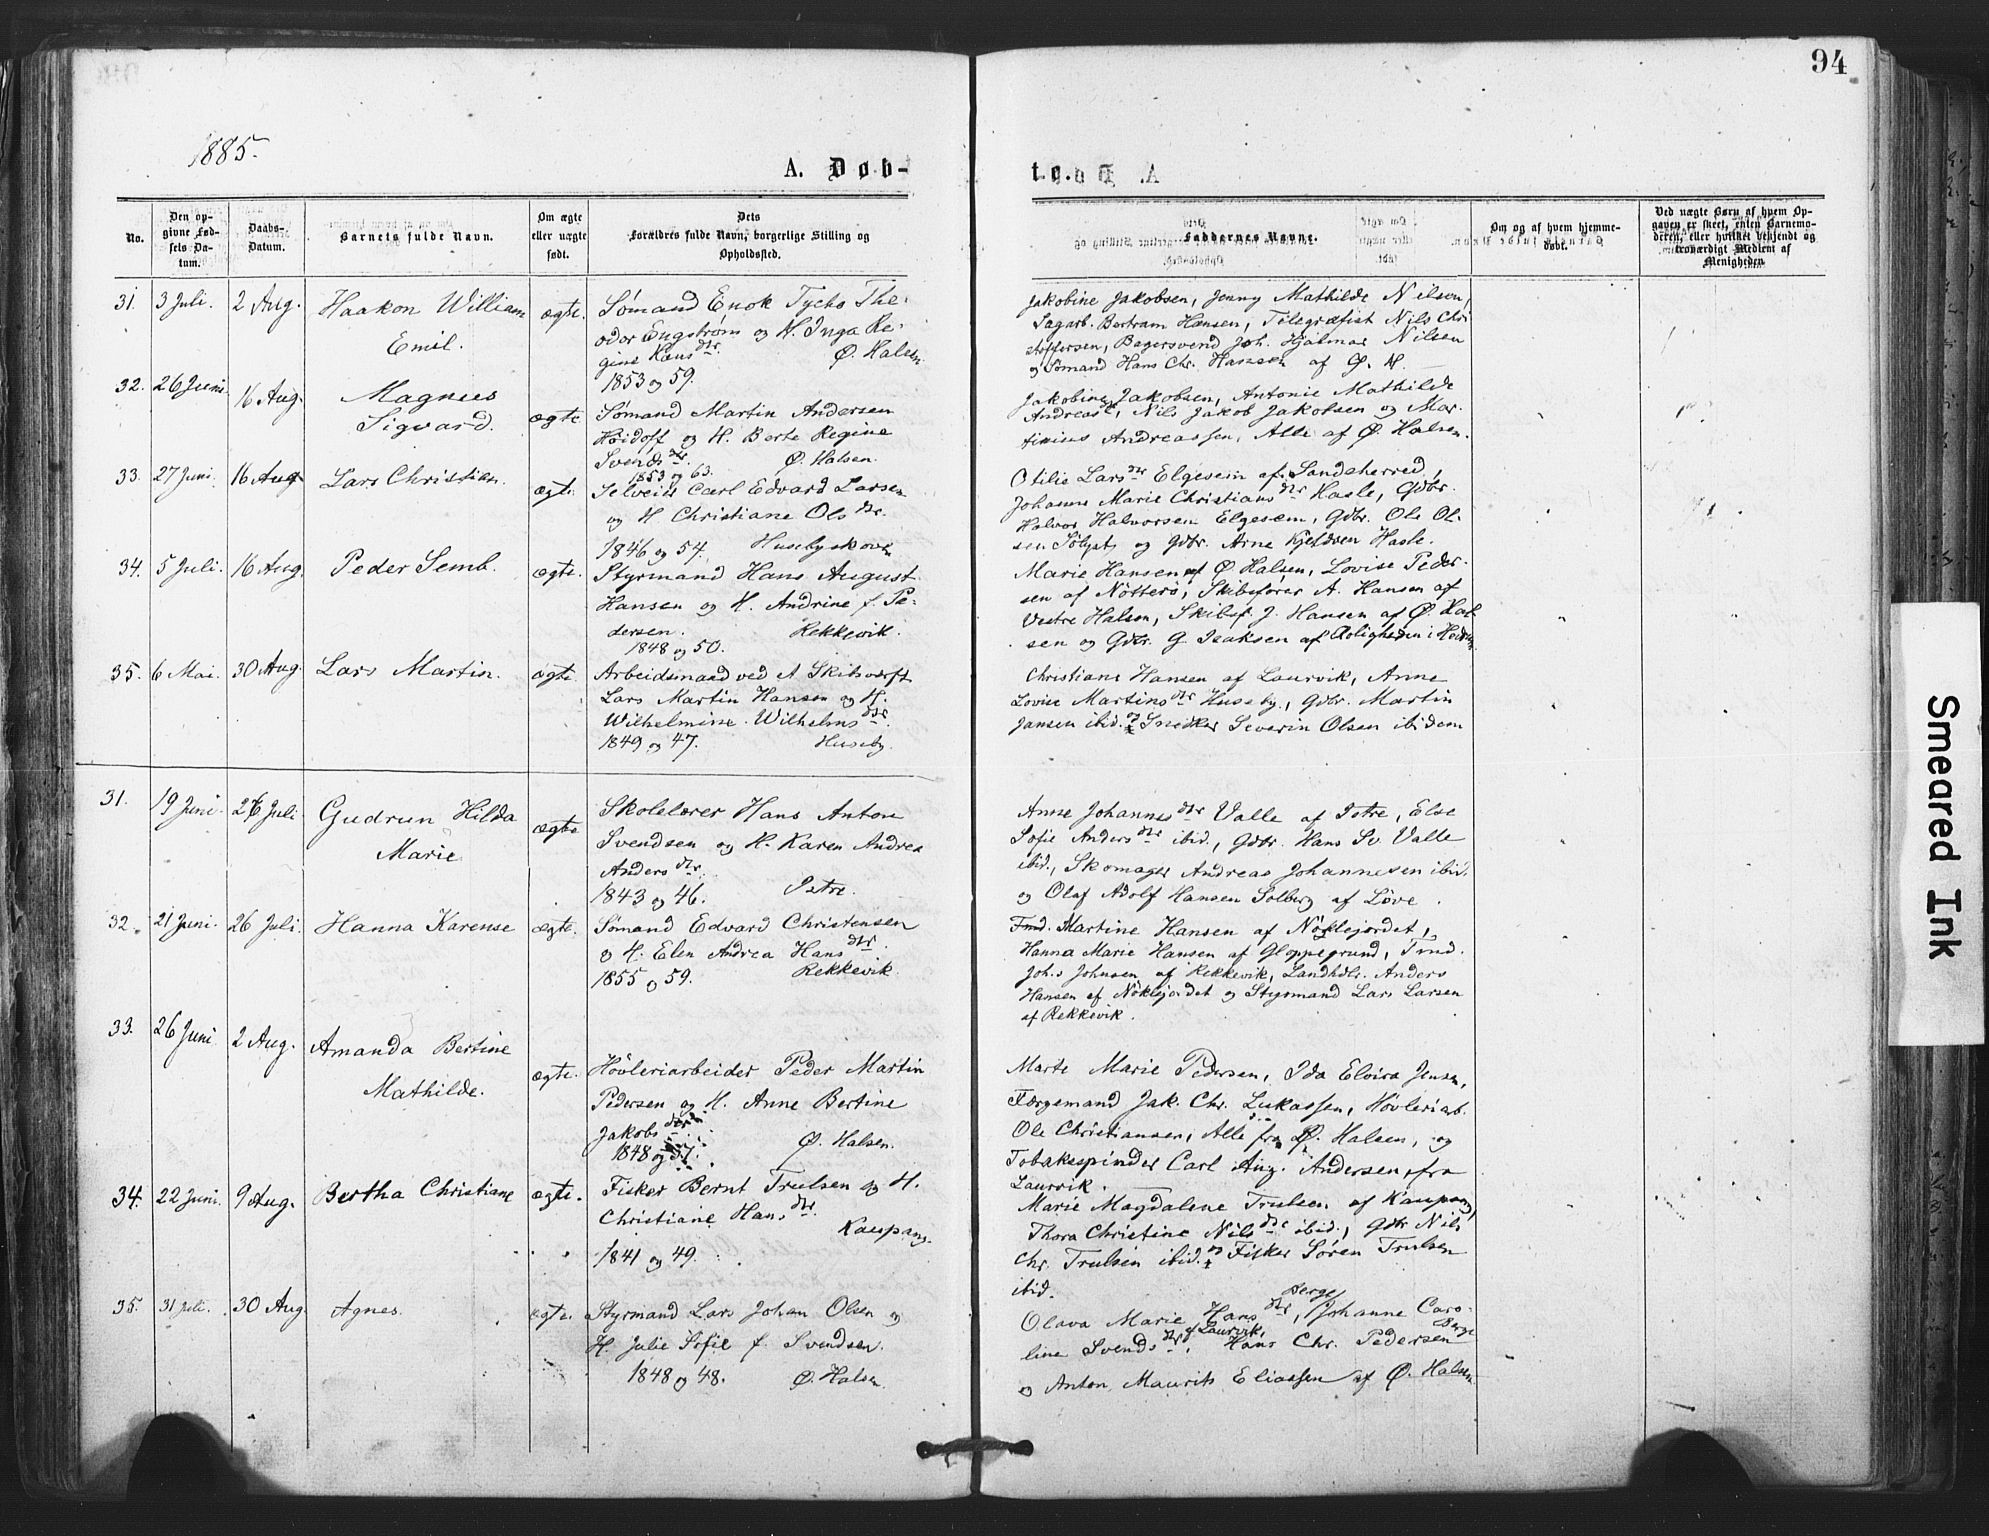 94
1885.
A. Døb-
te.
No.
Den op-
givne Fød-
sels Da-
tum.
Daabs-
Datum.
Barnets fulde Navn.
Om ægte
eller uægte
født.
Dets
Forældres fulde Navn, borgerlige Stilling og
Opholdssted.
Faddernes Navne.
Om og af hvem hjemme-
døbt.
Ved uægte Børn af hvem Op-
gaven er skeet, enten Barnemo-
deren, eller hvilket vekjendt og
troværdigt Medlem af
Menigheden
31. 3 Juli. 2 Aug. Haakon William
Emil.
ægte.
Sømand Enok Tycho The-
odor Engstrøm og H. Inga Re-
gine Hans dtr. Ø. Halsen.
1853 og 59.
Jakobine Jakobsen, Jenny Mathilde Nilsen,
Sagarb. Bertram Hansen, Telegrafist Nils Chri
stoffersen, Bagersvend Joh. Hjalmar Nilsen
og Sømand Hans Chr. Hansen af Ø. H.
32. 26 Juni. 16 Aug. Magnus
Sigvard.
ægte
Sømand Martin Andersen
Høidoff og H. Berte Regine
Svends dtr. Ø. Halsen.
1853 og 63.
Jakobine Jakobsen, Antonie Mathilde
Andreas, Nils Jakob Jakobsen og Mar-
tinius Andreassen, Alle af Ø. Halsen.
33. 27 Juni. 16 Aug. Lars Christian.
ægte.
Selveier Carl Edvard Larsen
og H Christiane Ols dtr.
1846 og 54. Husebyskoven
Otilie Lars dtr Elgesem af Sandeherred,
Johanne Marie Christians dtr Hasle, Gdbr.
Halvor Halvorsen Elgesem, Gdbr. Ole Ol-
sen Sølyst og Gdbr. Arne Kjeldsen Hasle.
34. 5 Juli. 16 Aug. Peder Semb.
ægte.
Styrmand Hans August
Hansen og H. Andrine f. Pe-
dersen. Rekkevik.
1848 og 50.
Marie Hansen af Ø Halsen, Lovise Peder-
sen af Nøtterø, Skibsfører A. Hansen af
Vestre Halsen, Skibsf J. Hansen af Ø. Hal-
sen og Gdbr. G. Isaksen af Roligheden i
35. 6 Mai. 30 Aug. Lars Martin.
ægte.
Arbeidsmand ved A Skibsværft
Lars Martin Hansen og H.
Wilhelmine Wilhelms dtr.
1849 og 47. Huseby.
Christiane Hansen af Laurvik, Anne
Lovise Martins dtr Huseby, Gdbr. Martin
Jansen ibid. og Snedker Severin Olsen ibidem
31. 19 Juni. 26 Juli Gudrun Hilda
Marie
ægte
Skolelærer Hans Anton
Svendsen og H. Karen Andrea
Anders dtr.
1843 og 46. Istre.
Anne Johannes dtr Valle af Istre, Else
Sofie Anders dtr ibid., Gdbr. Hans Sv. Valle
ibid., Skomager Andreas Johannesen ibid.
og Olaf Adolf Hansen Solberg af Løve.
32. 21 Juni. 26 Juli. Hanna Karense
ægte.
Sømand Edvard Christensen
og H. Elen Andrea Hans dtr.
1855 og 59. Rekkevik.
Fmd. Martine Hansen af Nøklejordet,
Hanna Marie Hansen af Gloppegrund, Tmd.
Johs Johnsen af Rekkevik, Landhdlr. Anders
Hansen af Nøklejordet og Styrmand Lars Larsen
af Rekkevik.
33. 26 Juni 2 Aug. Amanda Bertine
Mathilde.
ægte.
Høvleriarbeider Peder Martin
Pedersen og H. Anne Bertine
Jakobs dtr Ø. Halsen.
1848 og 57.
Marte Marie Pedersen, Ida Elvira Jensen,
Færgemand Jak. Chr. Lukassen, Høvleriarb.
Ole Christiansen, Alle fra Ø. Halsen, og
Tobakspinder Carl Aug. Andersen fra
Laurvik.
34. 22 Juni. 9 Aug. Bertha Christiane
ægte.
Fisker Bernt Trulsen og H.
Christiane Hans dtr.
Kaupang.
1841 og 49.
Marie Magdalene Trulsen af Kaupang,
Thora Christine Nils dtr ibid., Gdbr Nils
Chr. Trulsen ibid. og Fisker Søren Trulsen
ibid.
35. 31 Juli. 30 Aug. Agnes.
ægte.
Styrmand Lars Johan Olsen og
H. Julie Sofie f. Svendsen.
1848 og 48. Ø. Halsen.
Berge
Olava Marie Hans dtr, Johanne Caro-
line Svends dtr af Laurvik, Hans Chr. Pedersen Berge
og Anton Maurits Eliassen af Ø. Halsen.
Smeared Ink